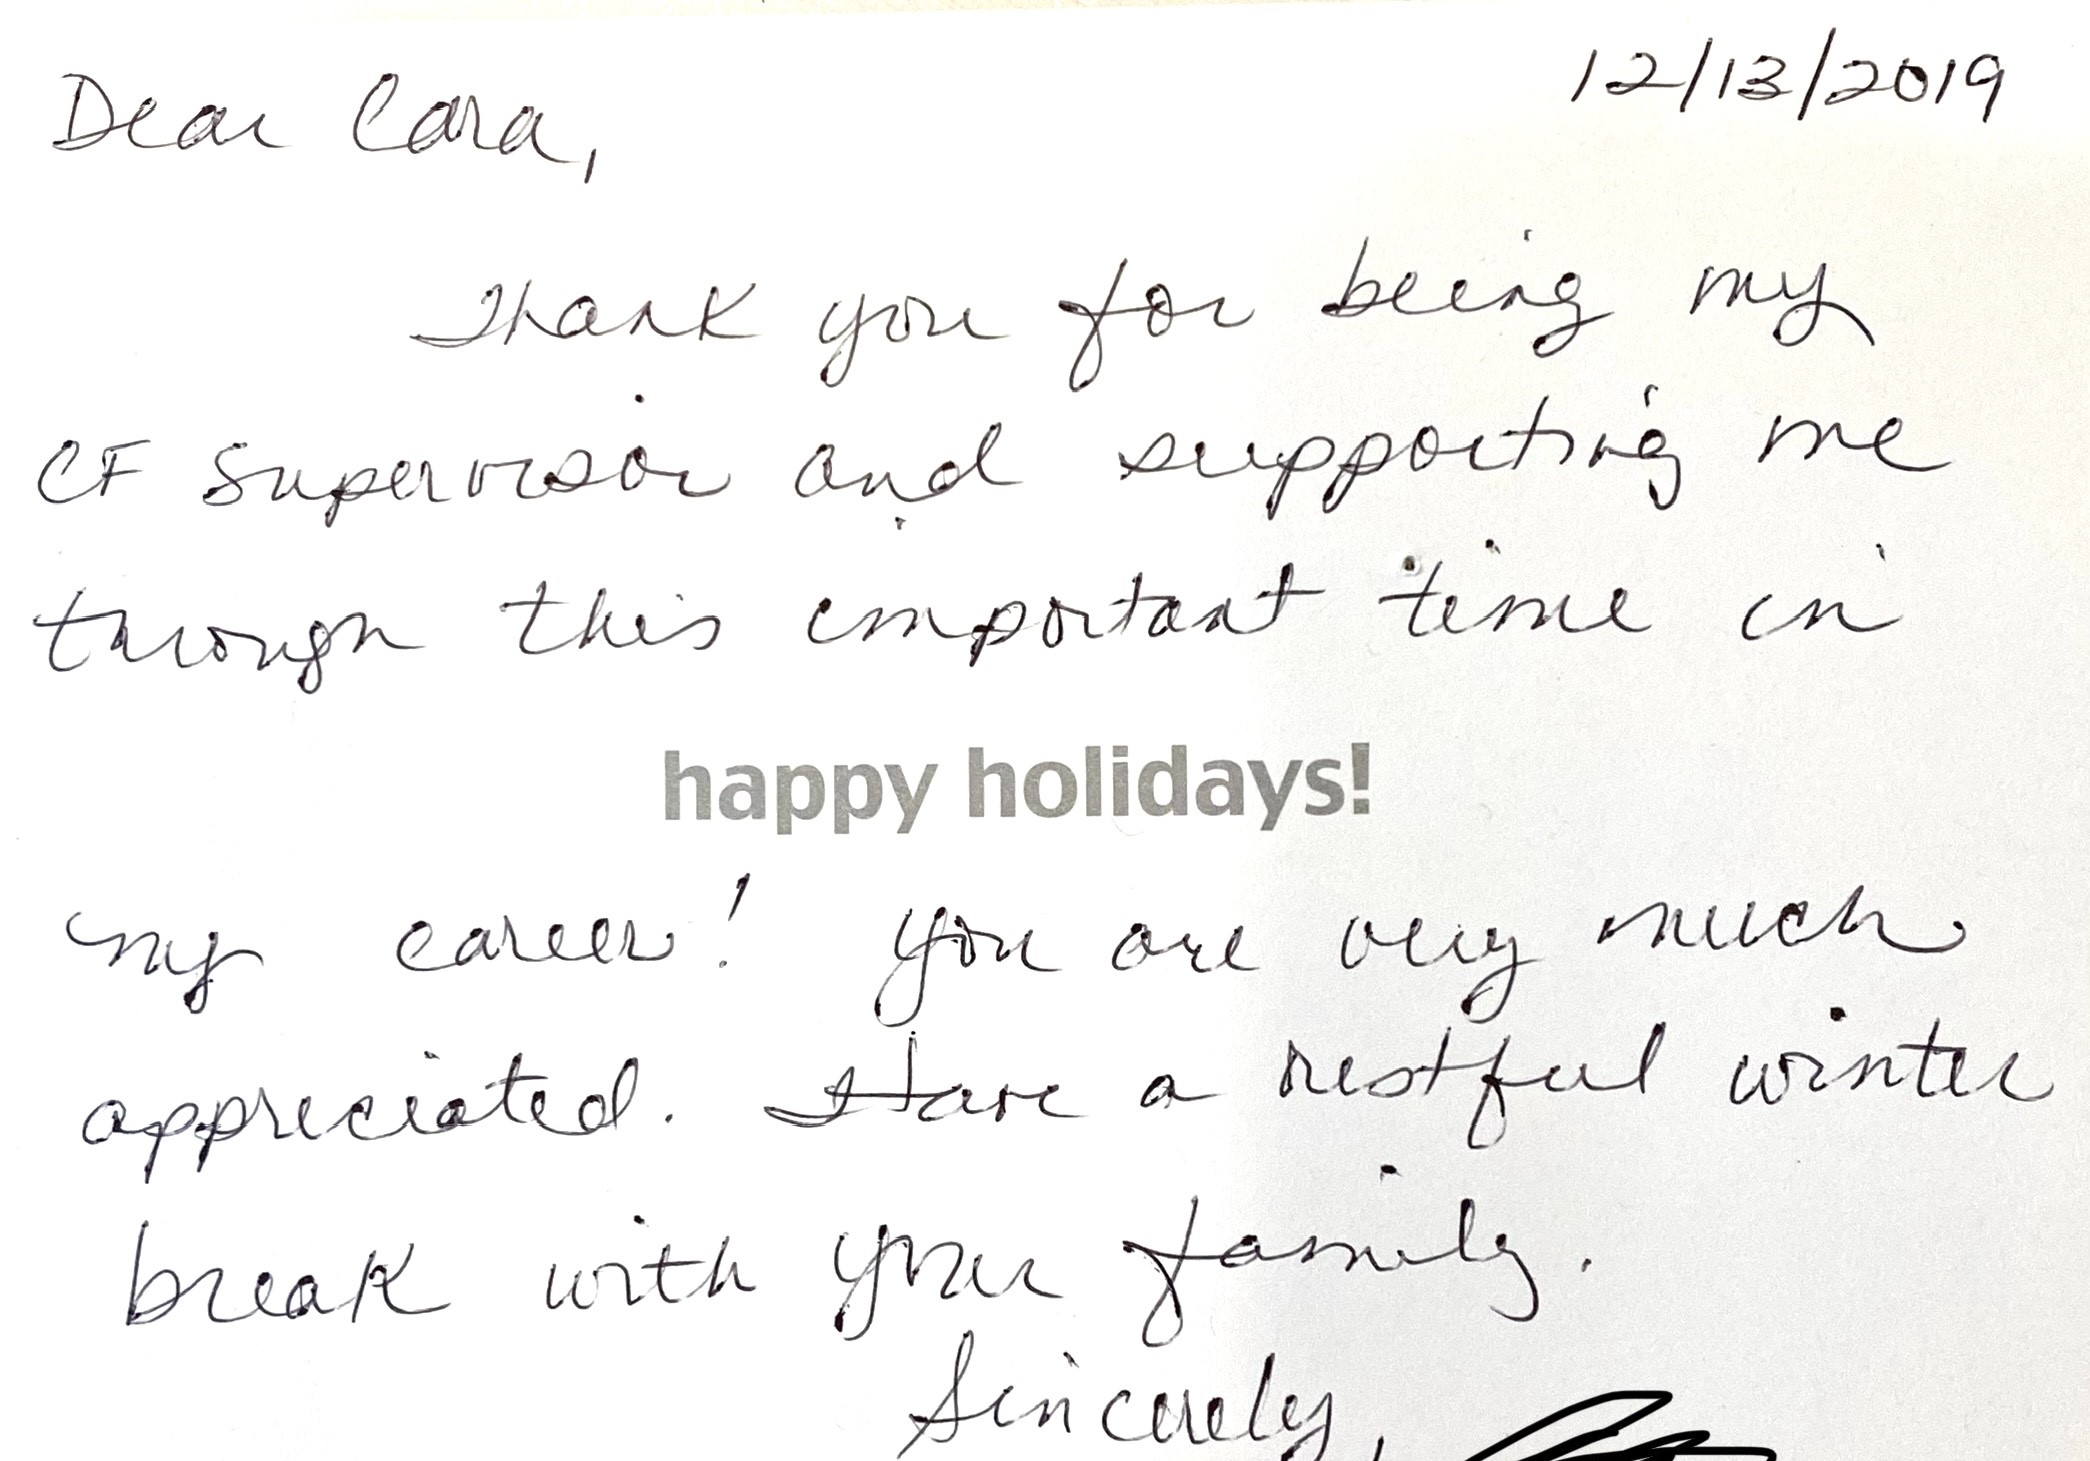 12/13/2019
Dear Cara,
Thank you for being my
CF Supervisor and supporting me
through this important time in
happy holidays!
my career! You are very much
appreciated. Have a restful winter
break with your family.
Sincerely,